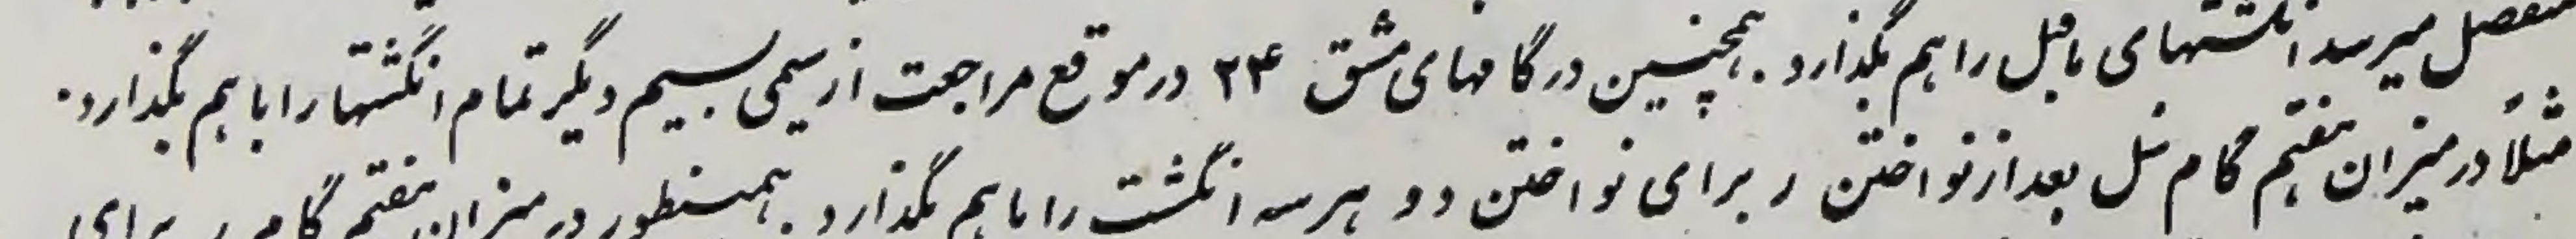 منفصل میرسد انگشتهای ماقبل را هم بگذارد. همچنین در گامهای مشق ۲۴ در موقع مراجعت از سیمی بسیم دیگر تمام انگشتها را با هم بگذارد.
مثلاً در میزان هفتم گام سل بعد از نواختن ر برای نواختن دو هر سه انگشت را با هم بگذارد. همینطور در میزان هفتم گام ر برای